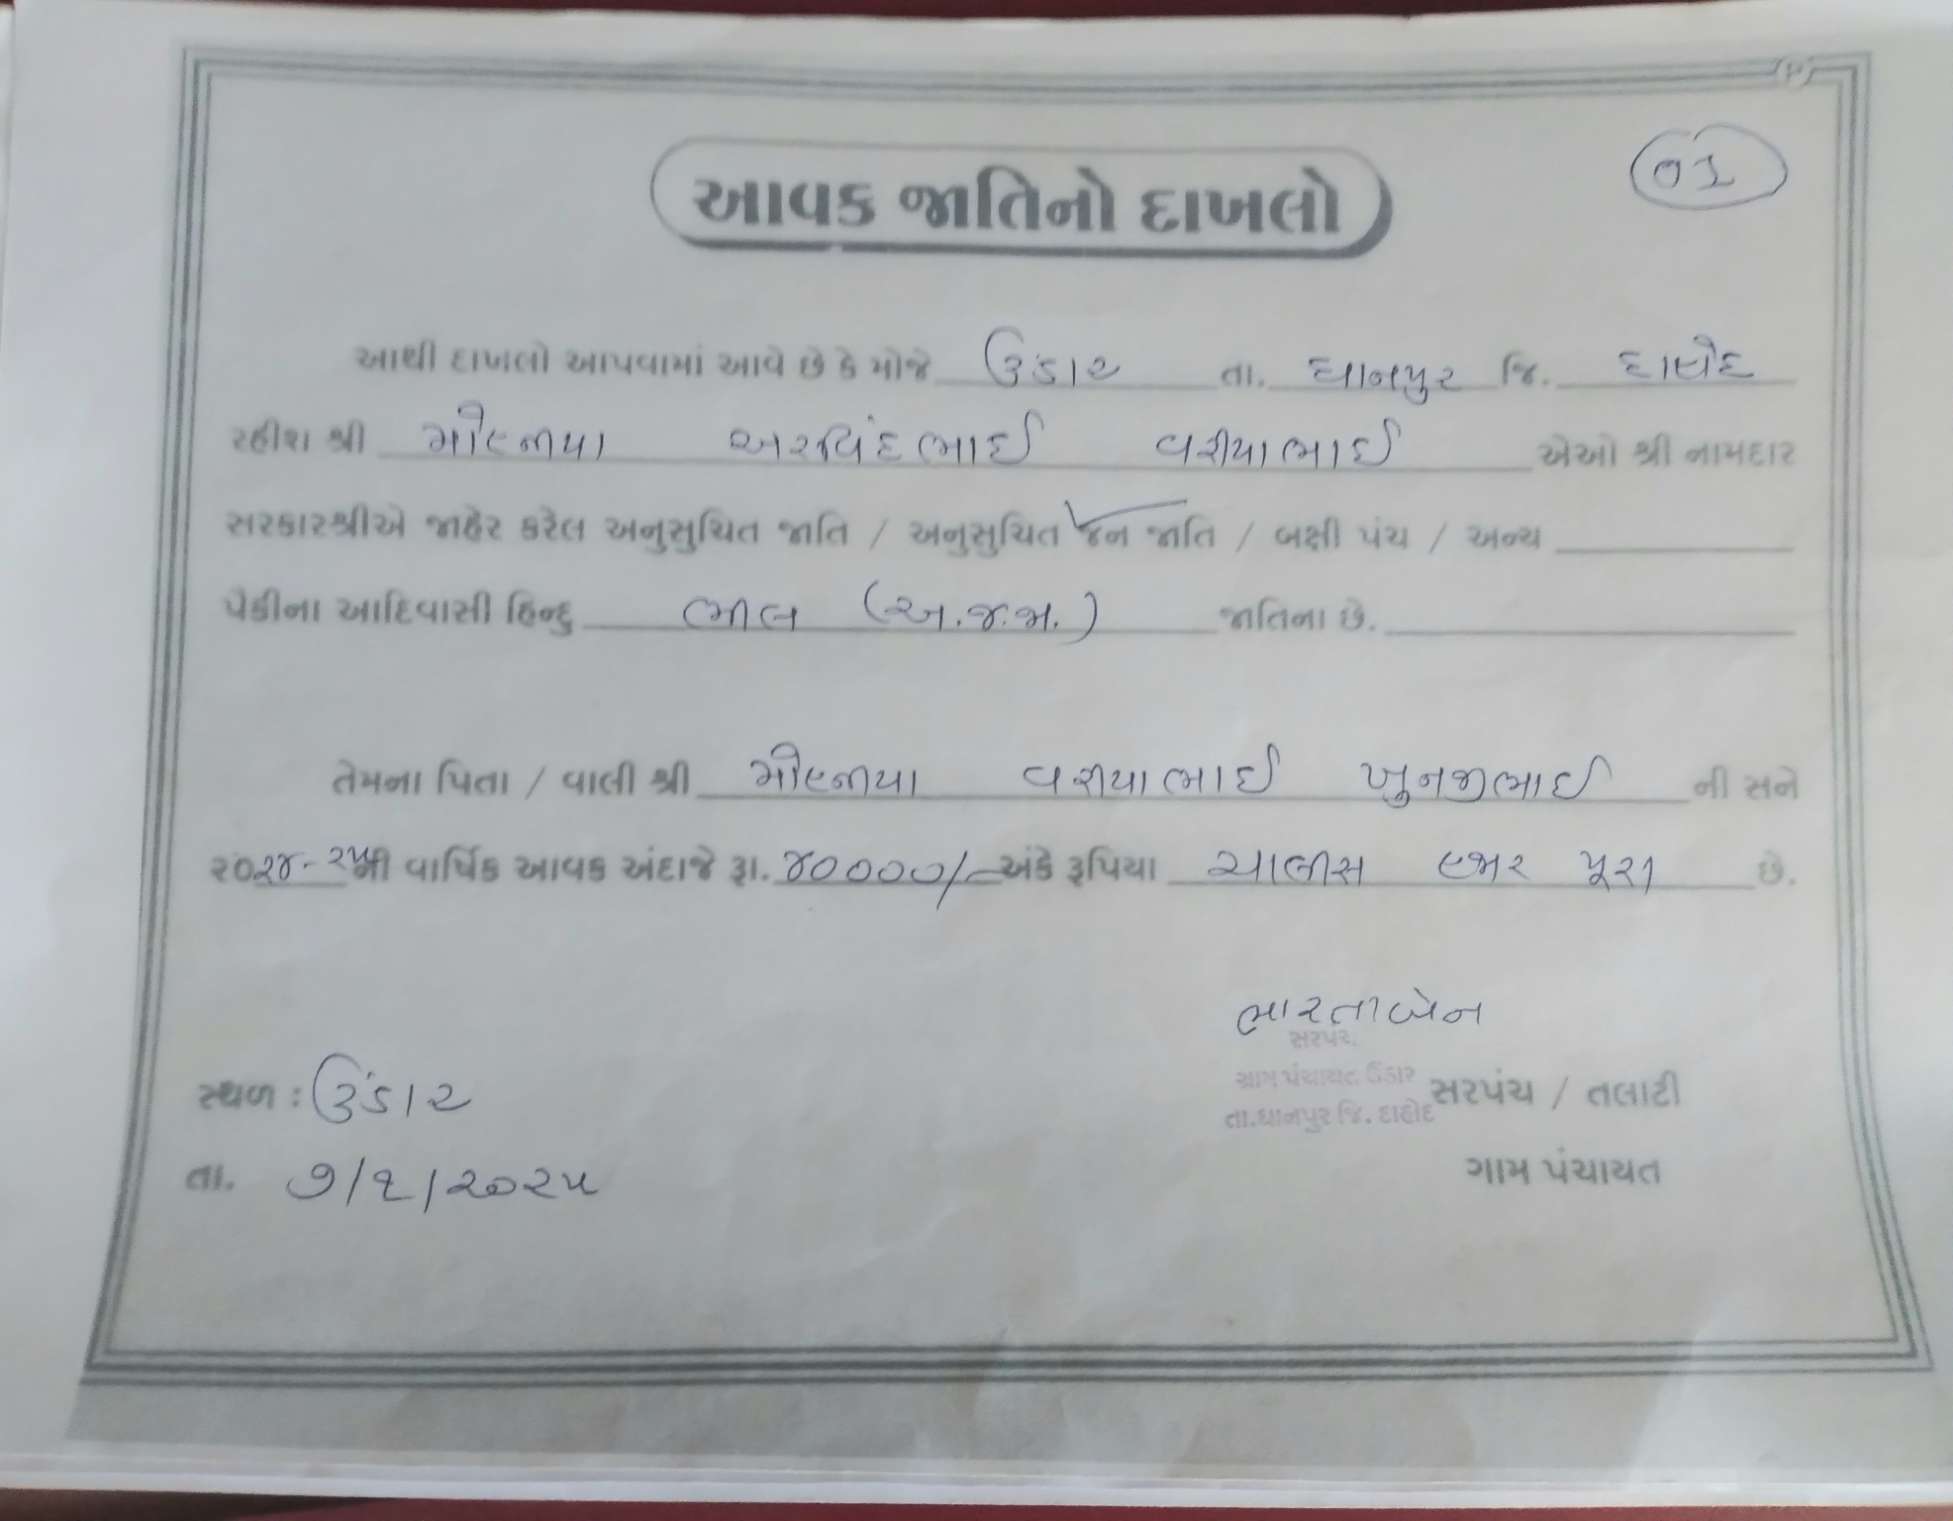 ૦૧
આવક જાતિનો દાખલો
આથી દાખલો આપવામાં આવે છે કે મોજે ઉંડાર તા. ધાનપુર જિ. દાહોદ
રહીશ શ્રી મોહનાયા અરવિંદભાઈ વરીયાભાઈ એઓ શ્રી નામદાર
સરકારશ્રીએ જાહેર કરેલ અનુસુચિત જાતિ / અનુસુચિત જન જાતિ / બક્ષી પંચ / અન્ય
પૈકીના આદિવાસી હિન્દુ ભીલ (અ.જ.જા.) જાતિના છે.
તેમના પિતા / વાલી શ્રી મોહનાયા વરીયાભાઈ ખુનજીભાઈ ની સને
૨૦૨૪-૨૫ની વાર્ષિક આવક અંદાજે રૂા. ૪૦૦૦૦/- અંકે રૂપિયા ચાલીસ હજાર પૂરા છે.
ભારતાબેન
સરપંચ
ગ્રામ પંચાયત ઉંડાર
તા.ધાનપુર જિ. દાહોદ
સરપંચ / તલાટી
ગામ પંચાયત
સ્થળ : ઉંડાર
તા. ૭/૧/૨૦૨૫